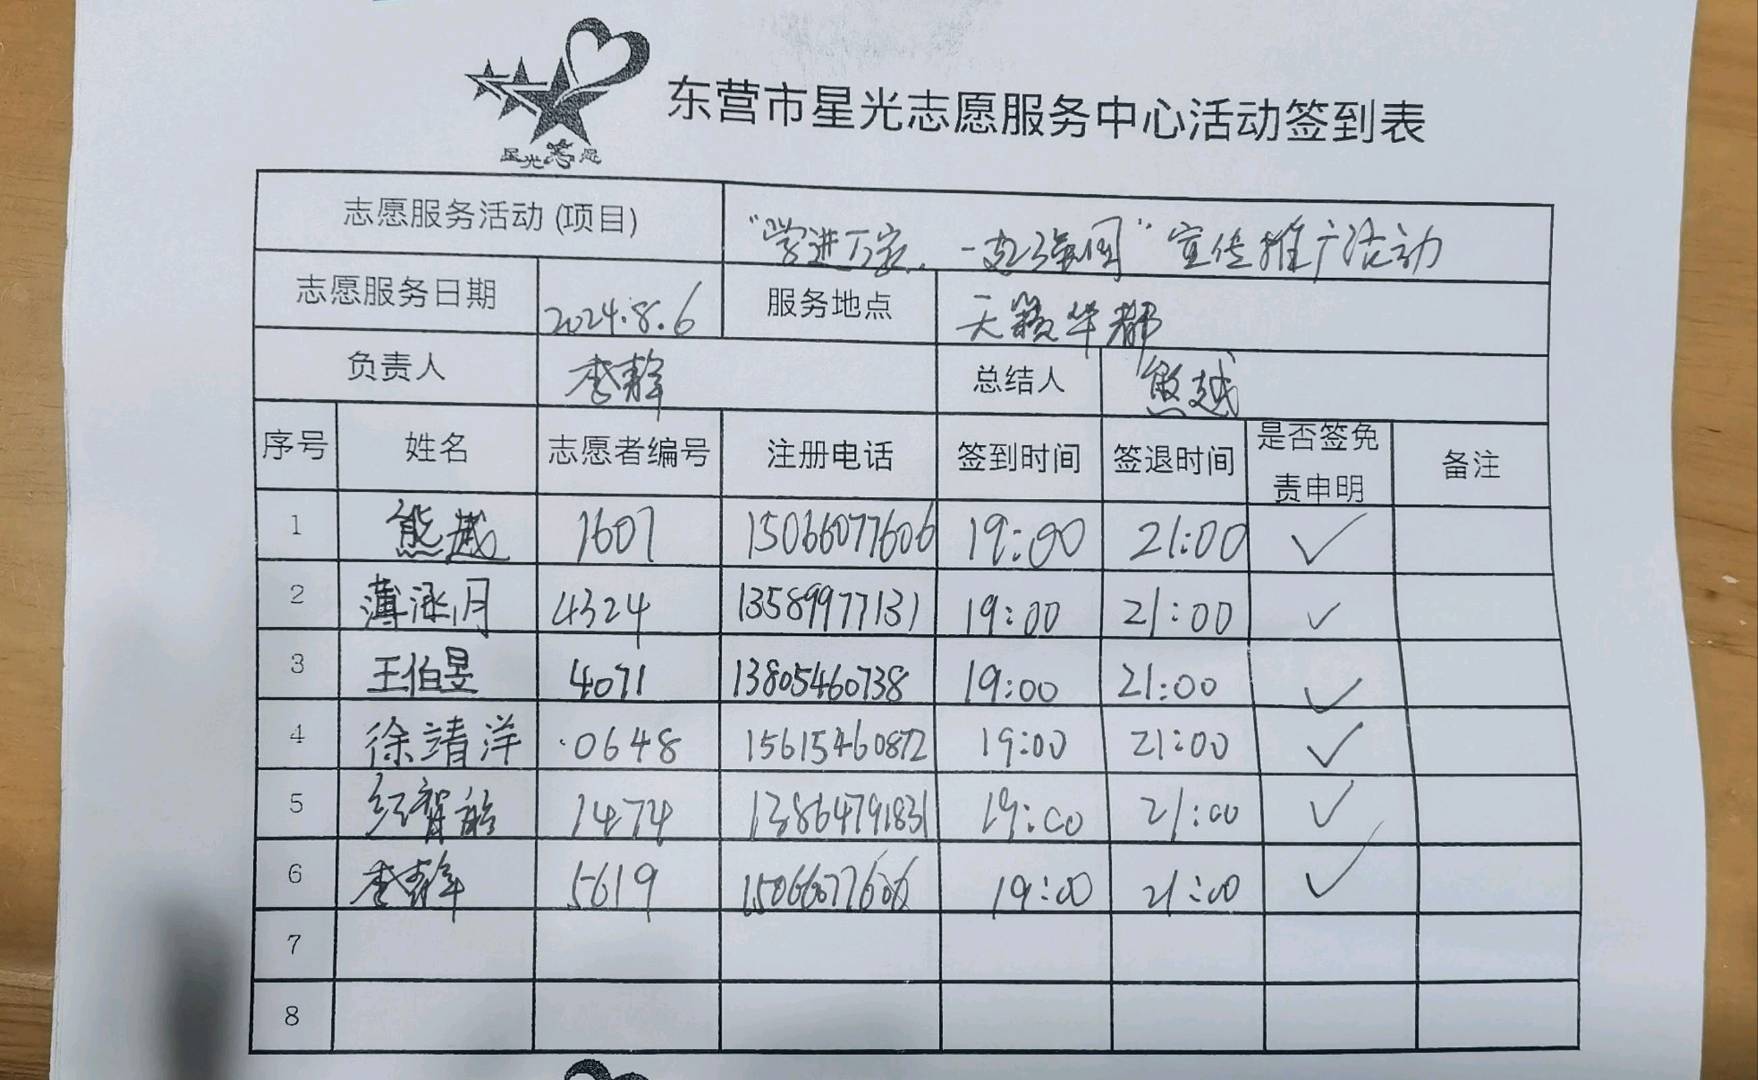 星光志愿
东营市星光志愿服务中心活动签到表
志愿服务活动(项目) “学进万家, 一起强国”宣传推广活动
志愿服务日期 2024.8.6 服务地点 天籁华都
负责人 李静 总结人 熊越
序号 姓名 志愿者编号 注册电话 签到时间 签退时间 是否签免责申明 备注
1 熊越 1607 15066077606 19:00 21:00 ✓
2 薄涵月 4324 13589977131 19:00 21:00 ✓
3 王伯昱 4071 13805460738 19:00 21:00 ✓
4 徐靖洋 0648 15615460872 19:00 21:00 ✓
5 1474 13864791831 19:00 21:00 ✓
6 李静 5619 15066077606 19:00 21:00 ✓
7
8